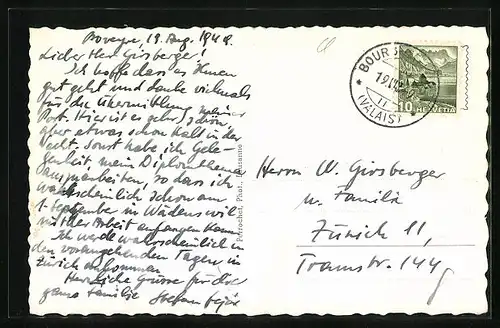 Boveyre, 19. Aug. 1942.
Lieber Herr Girsberger!
Ich hoffe dass es Ihnen
gut geht und danke vielmals
für die Übermittlung meiner
Post. Hier ist es sehr schön,
aber etwas schon kalt in der
Nacht. Sonst habe ich Gele-
genheit mein Diplomthema
auszuarbeiten, so dass ich
wahrscheinlich schon am
1-September in Wädenswil
mit der Arbeit anfangen kann.
Ich werde wahrscheinlich in
den vorangehenden Tagen in
Zürich ankommen.
Herzliche Grüsse für die
ganze Familie Stefan
Perrochet, Phot., Lausanne
BOUR
19
(VALAIS)
10 HELVETIA
Herrn W. Girsberger
u. Familie
Zürich 11,
Tramstr. 144